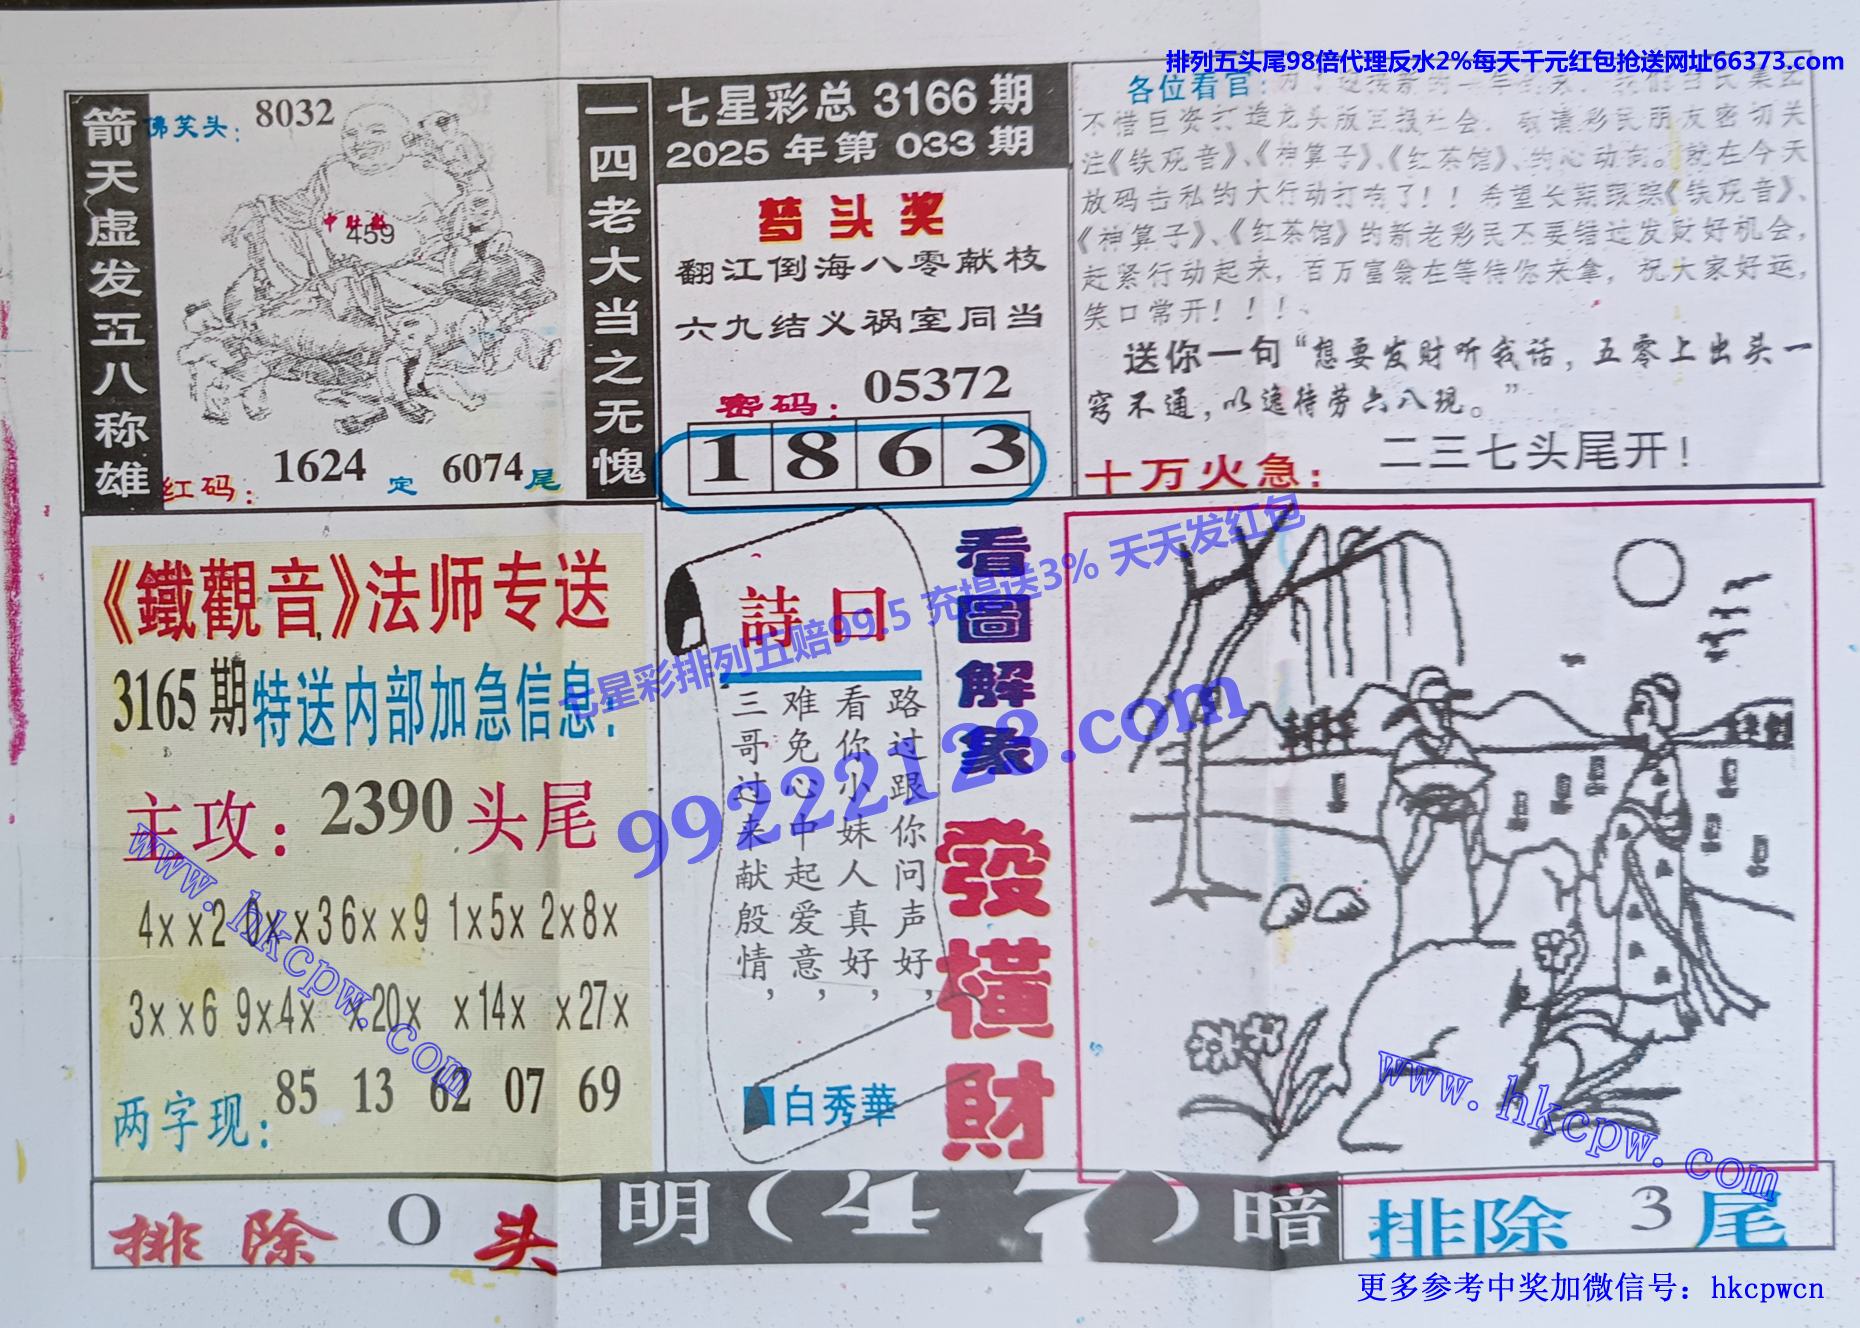 排列五头尾98倍代理反水2%每天千元红包抢送网址66373.com
箭天虚发五八称雄
佛笑头：8032
中肚数
459
红码：1624 定 6074 尾
一四老大当之无愧
七星彩总 3166 期
2025 年第 033 期
梦头奖
翻江倒海八零献枝
六九结义祸室同当
密码：05372
1 8 6 3
各位看官：
不惜巨资打造龙头版回报社会，敬请彩民朋友密切关
注《铁观音》、《神算子》、《红茶馆》、的心动向。就在今天
放码击私的大行动打响了！！希望长期跟踪《铁观音》、
《神算子》、《红茶馆》的新老彩民不要错过发财好机会，
赶紧行动起来，百万富翁在等待您来拿，祝大家好运，
笑口常开！！！、
送你一句“想要发财听我话，五零上出头一
窍不通，以逸待劳六八现。”
十万火急：二三七头尾开！
《鐵觀音》法师专送
3165期特送内部加急信息：
主攻：2390头尾
4××2 0××3 6××9 1×5× 2×8×
3××6 9×4× ×20× ×14× ×27×
两字现：85 13 62 07 69
詩曰
路过跟你问声好，
看你小妹人真好，
难免心中起爱意，
三哥过来献殷情，
白秀華
看圖解象
發橫財
七星彩排列五赔99.5 充提送3% 天天发红包
99222128.com
www.hkcpw.com
www.hkcpw.com
排除 0 头
明（4 7）暗
排除 3 尾
更多参考中奖加微信号：hkcpwcn